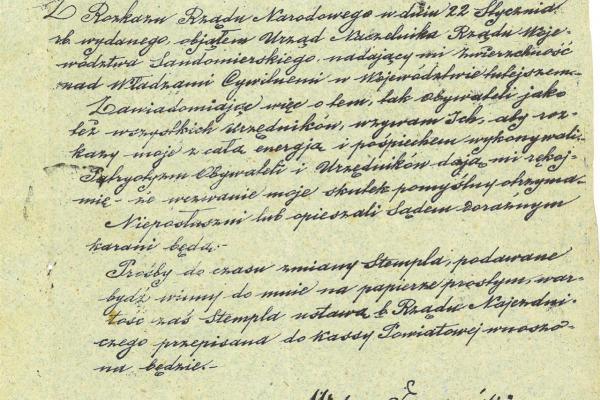 Z Rozkazu Rządu Narodowego w dniu 22 Stycznia
rb. wydanego, objąłem Urząd Naczelnika Rządu Woje-
wództwa Sandomierskiego, nadający mi zwierzchność
nad Władzami Cywilnemi w Województwie tutejszem.
Zawiadomiając więc o tem, tak Obywateli jako
też wszystkich Urzędników, wzywam Ich, aby roz-
kazy moje z całą energją i pośpiechem wykonywali.
Patryotyzm Obywateli i Urzędników dają mi rękoj-
mię - że wezwanie moje skutek pomyślny otrzyma.
Nieposłuszni lub opieszali Sądem doraźnym
karani będą.-
Prośby do czasu zmiany Stempla, podawane
bydź winny do mnie na papierze prostym, war-
tość zaś Stempla ustawą b. Rządu Najezdni-
czego przepisana do kassy Powiatowej wnoszo-
na będzie.-